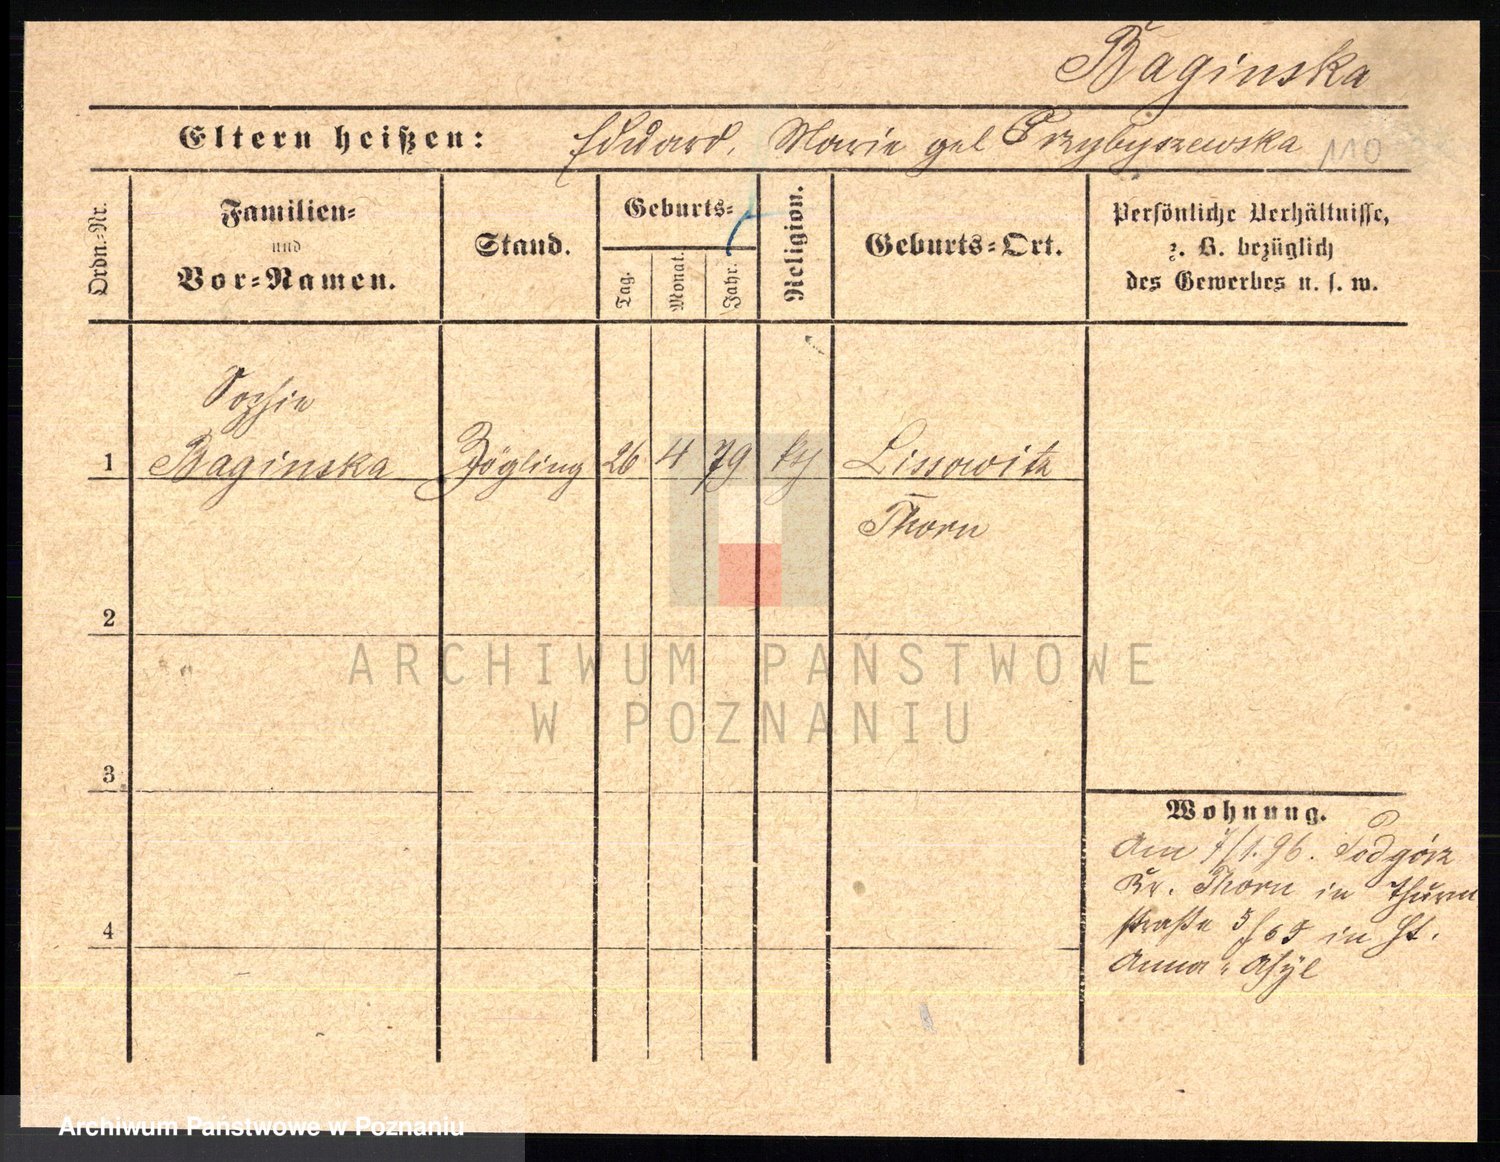 Baginska
Eltern heißen: Eduard, Marie geb Przybyszewska 110
Ordn.-Nr.
Familien-
und
Vor-Namen.
Stand.
Geburts-
Tag.
Monat.
Jahr.
Religion.
Geburts-Ort.
Persönliche Verhältnisse,
z. B. bezüglich
des Gewerbes u. s. w.
Sophie
1 Baginska Zögling 26 4 79 Lissowitz
Thorn
2
3
4
Wohnung.
Am 7/1.96. Podgórz
Kr. Thorn in Thurm
straße in St.
Anna-Asyl
ARCHIWUM PAŃSTWOWE
W POZNANIU
Archiwum Państwowe w Poznaniu